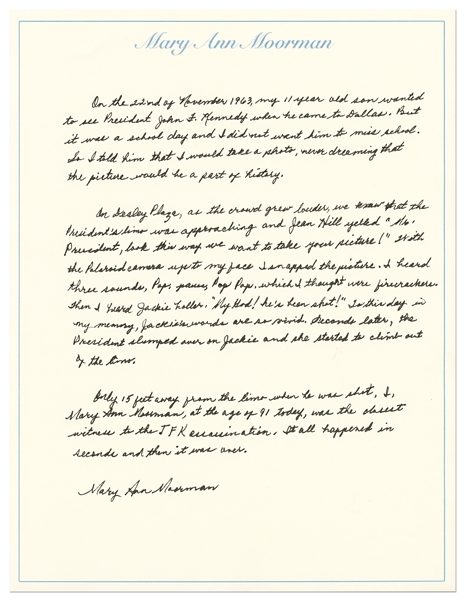 Mary Ann Moorman
On the 22nd of November 1963, my 11 year old son wanted
to see President John F. Kennedy when he came to Dallas. But
it was a school day and I did not want him to miss school.
So I told him that I would take a photo, never dreaming that
the picture would be a part of history.
On Dealey Plaza, as the crowd grew louder, we knew that the
President's limo was approaching and Jean Hill yelled "Mr.
President, look this way we want to take your picture!" With
the Polaroid camera up to my face I snapped the picture. I heard
three sounds, Pop, pause, Pop Pop, which I thought were firecrackers.
Then I heard Jackie holler, "My God! he's been shot!" To this day in
my memory, Jackie's words are so vivid. Seconds later, the
President slumped over on Jackie and she started to climb out
of the limo.
Only 15 feet away from the limo when he was shot, I,
Mary Ann Moorman, at the age of 91 today, was the closest
witness to the JFK assassination. It all happened in
seconds and then it was over.
Mary Ann Moorman